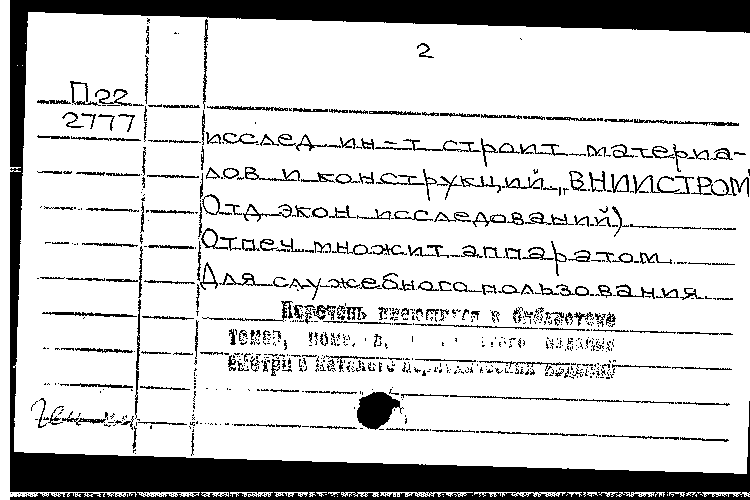 2
П22
2777
исслед ин-т строит материа-
лов и конструкций „ВНИИСТРОМ
Отд экон исследований).
Отпеч множит аппаратом.
Для служебного пользования.
Перечень имеющихся в библиотеке
томов, этого издания
смотри в каталоге периодических изданий